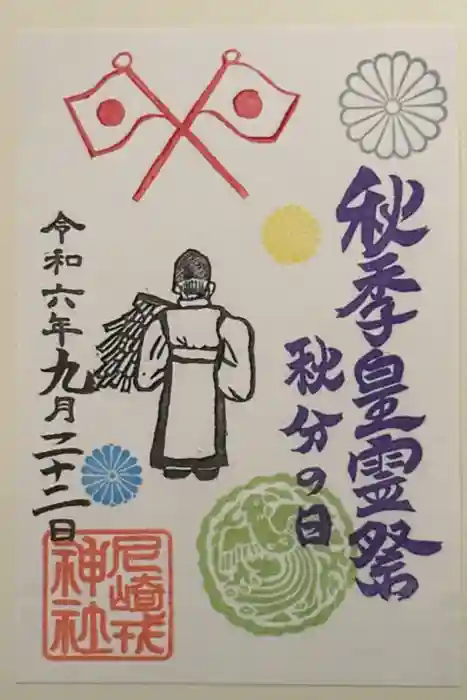 秋季皇霊祭
秋分の日
令和六年九月二十二日
尼崎戎
神社